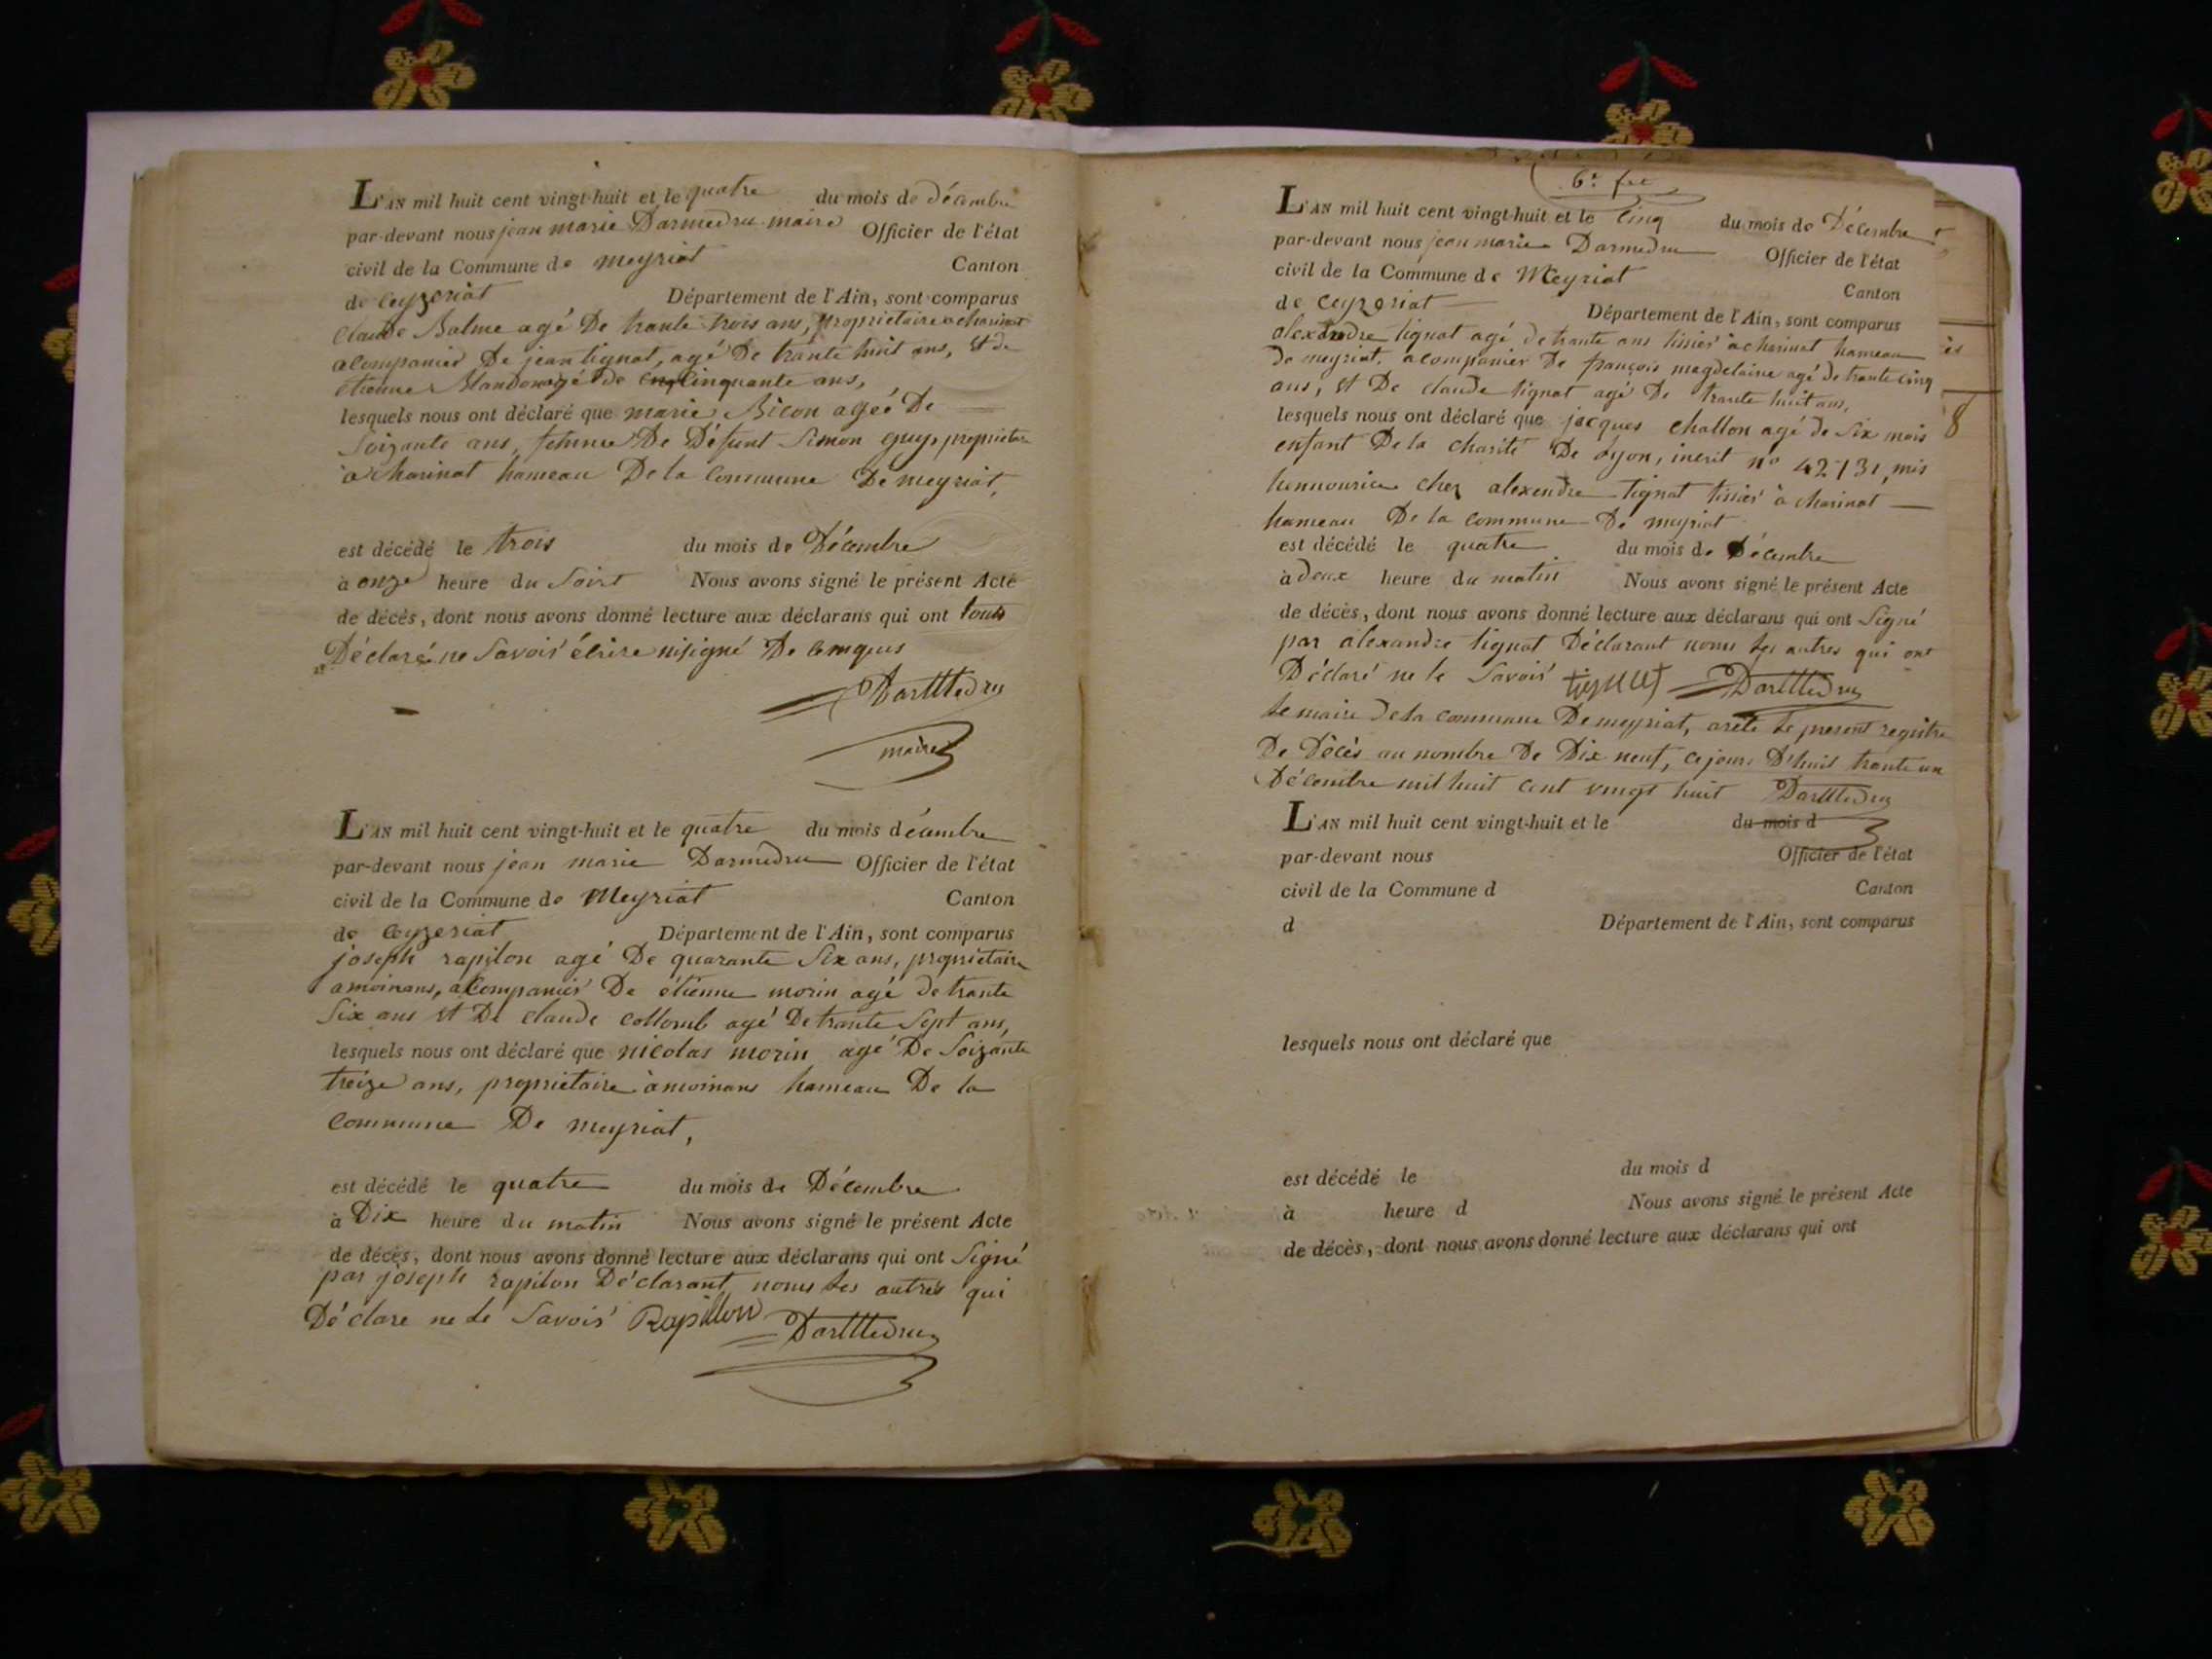 L'AN mil huit cent vingt-huit et le quatre du mois de décembre
par-devant nous jean marie Darmedru maire Officier de l'état
civil de la Commune de meyriat Canton
de ceyzeriat Département de l'Ain, sont comparus
Claude Balme agé De trante trois ans, proprietaire a charinat
acompanier De jean tignat, agé De trante huit ans, et de
étienne agé de cinquante ans,
lesquels nous ont déclaré que marie Bicon agée De
Soizante ans, femme De Défunt Simon guy, proprietaire
à charinat hameau De la Commune De meyriat,
est décédé le trois du mois de Décembre
à onze heure du Soirt Nous avons signé le présent Acte
de décès, dont nous avons donné lecture aux déclarans qui ont touts
Déclaré ne Savoir écrire ni signé De lemqius
Darmedru
maire
L'AN mil huit cent vingt-huit et le quatre du mois décembre
par-devant nous jean marie Darmedru Officier de l'état
civil de la Commune de Meyriat Canton
de Ceyzeriat Département de l'Ain, sont comparus
joseph rapilon agé De quarante Six ans, propriétaire
amoinans, acompanier De étienne morin agé de trante
Six ans et De claude collomb agé De trante Sept ans,
lesquels nous ont déclaré que nicolas morin agé De Soizante
treize ans, proprietaire à moinans hameau De la
Commune De meyriat,
est décédé le quatre du mois de Décembre
à Dix heure du matin Nous avons signé le présent Acte
de décès, dont nous avons donné lecture aux déclarans qui ont Signé
par joseph rapilon Déclarant, nonus les autres qui
Déclare ne Le Savoir Rapillon Darmedru
6e fet
L'AN mil huit cent vingt-huit et le Cinq du mois de Décembre
par-devant nous jean marie Darmedru Officier de l'état
civil de la Commune de Meyriat Canton
de ceyzeriat Département de l'Ain, sont comparus
alexandre tignat agé de trante ans tissier à charinat hameau
De meyriat. acompanier De françois magdelaine agé de trante cinq
ans, et De claude tignat agé De trante huit ans,
lesquels nous ont déclaré que jacques challon agé de Six mois
enfant De la charité De Lyon, inscrit no 42131, mis
hennourice chez alexendre tignat tissier à charinat
hameau De la commune De meyriat
est décédé le quatre du mois de Décembre
à deux heure du matin Nous avons signé le présent Acte
de décès, dont nous avons donné lecture aux déclarans qui ont Signé
par alexandre tignat Déclarant nonus Les autres qui ont
Déclaré ne le Savoir tignat Darmedru
Le maire De la commune De meyriat, arête Le present registre
De Décès au nombre De Dix neuf, ce jours D'huit trante un
Décembre mil huit cent vingt huit Darmedru
L'AN mil huit cent vingt-huit et le du mois d
par-devant nous Officier de l'état
civil de la Commune d Canton
d Département de l'Ain, sont comparus
lesquels nous ont déclaré que
est décédé le du mois d
à heure d Nous avons signé le présent Acte
de décès, dont nous avons donné lecture aux déclarans qui ont